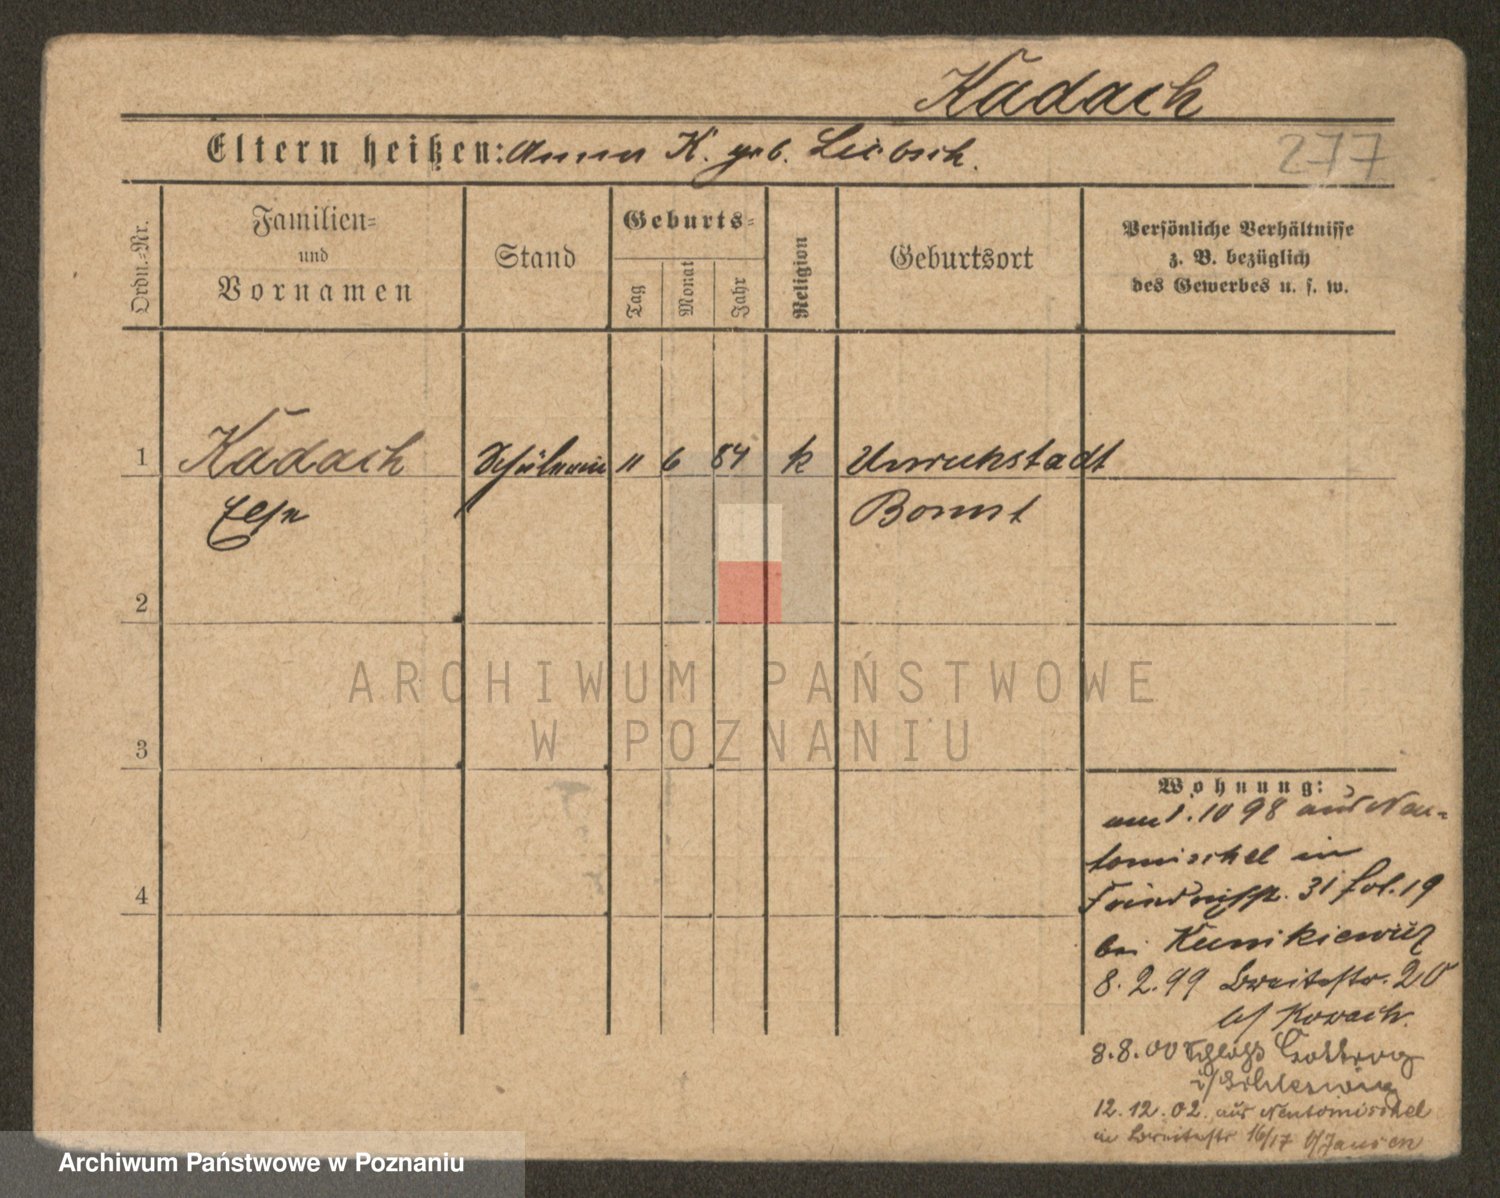 Kadach
Eltern heißen: Anna K. geb. Liebsch.
277
Ordn.-Nr.
Familien-
und
Vornamen
Stand
Geburts-
Tag
Monat
Jahr
Religion
Geburtsort
Persönliche Verhältnisse
z. B. bezüglich
des Gewerbes u. s. w.
1
Kadach
Schülerin
11
6
84
k
Unruhstadt
Else
Bomst
2
ARCHIWUM PAŃSTWOWE
W POZNANIU
3
Wohnung:
am 1.10 98 aus Neu-
tomischel in
31 fol. 19
bei
8.2.99 Breitestr. 20
b/
8.8.00 Schloß Gottorg
i/Schleswig
12.12.02. aus Neutomischel
in Breitestr 16/17 b/Jansen
4
Archiwum Państwowe w Poznaniu